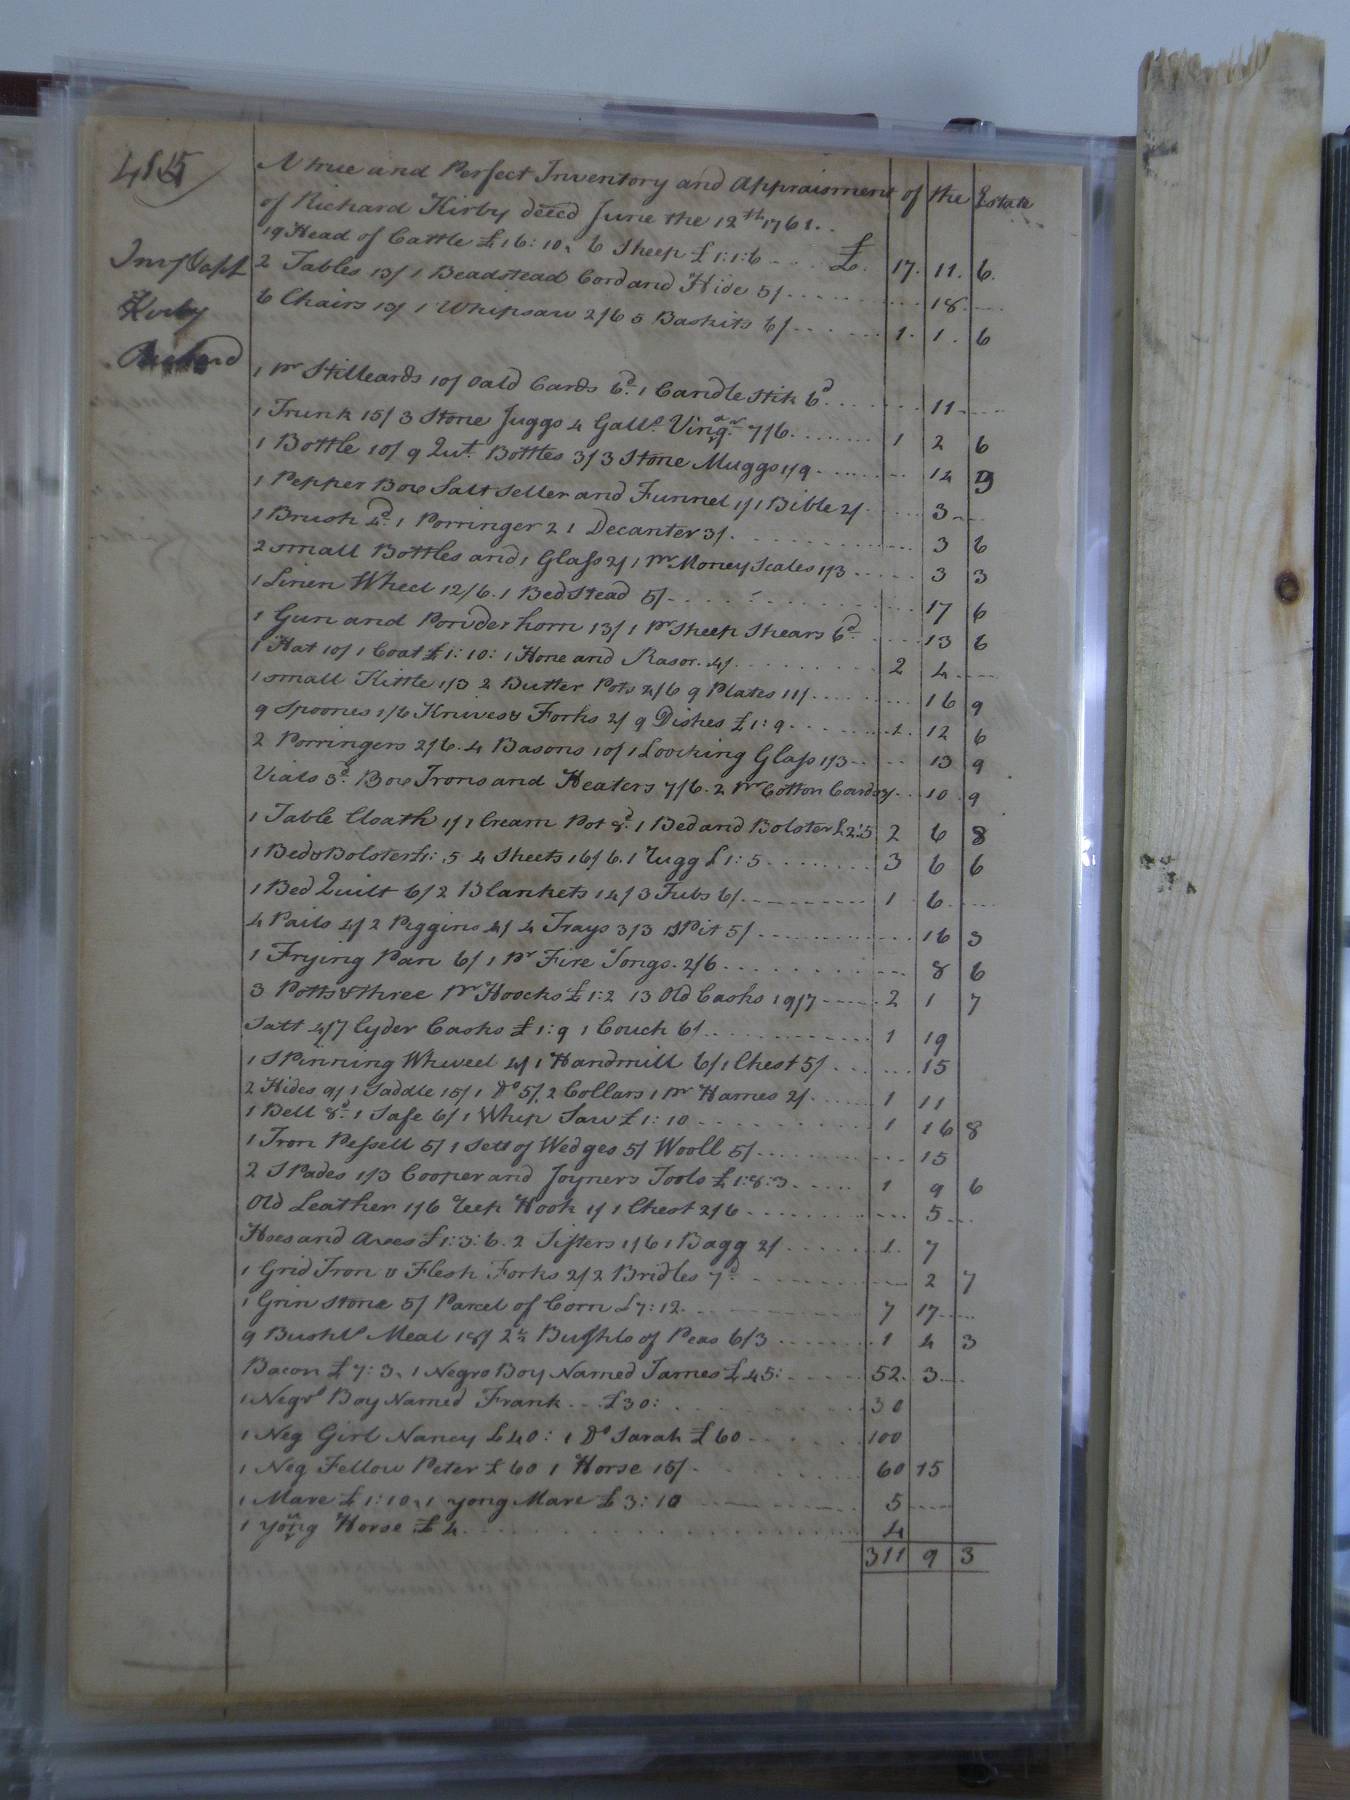 485
A true and Perfect Inventory and Appraisment of the Estate
of Richard Kirby deced June the 12th 1761..
19 Head of Cattle £16:10, 6 Sheep £1:1:6 £ 17. 11. 6.
Inv & Appt
2 Tables 13/ 1 Beadstead Cord and Hide 5/ 18
Kirby
6 Chairs 13/ 1 Whipsaw 2/6 5 Baskits 6/ 1. 1. 6
Richard
1 pr Stilleards 10/ oald Cards 6d 1 Candle Stik 6d 11
1 Trunk 15/ 3 Stone Juggs 4 Galls. Vinqar 7/6 1 2 6
1 Bottle 10/ 9 Qut. Bottles 3/ 3 Stone Muggs 1/9 14 9
1 Pepper Box Salt Seller and Funnel 1/ 1 Bible 2/ 3
1 Brush 4d. 1 Porringer 2 1 Decanter 3/. 3 6
2 small Bottles and 1 Glass 2/ 1 pr Money Scales 1/3 3 3
1 Linen Wheel 12/6. 1 BedStead 5/ 17 6
1 Gun and Powder horn 13/ 1 pr Sheep Shears 6d 13 6
1 Hat 10/ 1 Coat £1:10: 1 Hone and Rasor. 4/ 2 4
1 small Kittle 1/3 2 Butter Pots 4/6 9 Plates 11/ 16 9
9 Spoones 1/6 Knives & Forks 2/ 9 Dishes £1:9 1. 12 6
2 Porringers 2/6. 4 Basons 10/ 1 Loocking Glass 1/3 13 9
Vials 3d. Box Irons and Heaters 7/6. 2 pr Cotton Cards 3/ 10 9
1 Table Cloath 1/ 1 Cream Pot 8d. 1 Bed and Bolster £2:5 2 6 8
1 Bed & Bolster £1:5 4 Sheets 16/6. 1 Rugg £1:5 3 6 6
1 Bed Quilt 6/ 2 Blankets 14/ 3 Tubs 6/ 1 6
4 Pails 4/ 2 Piggins 4/ 4 Trays 3/3 1 Spit 5/ 16 3
1 Frying Pan 6/ 1 Pr Fire Tongs. 2/6 8 6
3 Potts & three Pr Hoocks £1:2 13 Old Casks 19/7 2 1 7
Salt 4/7 Cyder Casks £1:9 1 Couch 6/ 1 19
1 Spinning Wheeel 4/ 1 Handmill 6/ 1 Chest 5/ 15
2 Hides 9/ 1 Saddle 15/ 1 Do 5/. 2 Collars 1 pr Hames 2/ 1 11
1 Bell 8d. 1 Safe 6/ 1 Whip Saw £1:10 1 16 8
1 Iron Pessell 5/ 1 Sett of Wedges 5/ Wooll 5/ 15
2 Spades 1/3 Cooper and Joyners Tools £1:8:3 1 9 6
Old Leather 1/6 Reep Hook 1/ 1 Chest 2/6 5
Hoes and Axes £1:3:6. 2 Sifters 1/6 1 Bagg 2/ 1. 7
1 Grid Iron & Flesh Forks 2/ 2 Bridles 7d 2 7
1 Grin Stone 5/ Parcel of Corn £7:12. 7 17
9 Bushls Meal 18/ 2½ Bushls of Peas 6/3 1 4 3
Bacon £7:3, 1 Negro Boy Named James £45: 52. 3
1 Negro Boy Named Frank £30: 30
1 Neg Girl Nancy £40: 1 Do Sarah £60 100
1 Neg Fellow Peter £60 1 Horse 15/ 60 15
1 Mare £1:10, 1 yong Mare £3:10 5
1 young Horse £4 4
311 9 3